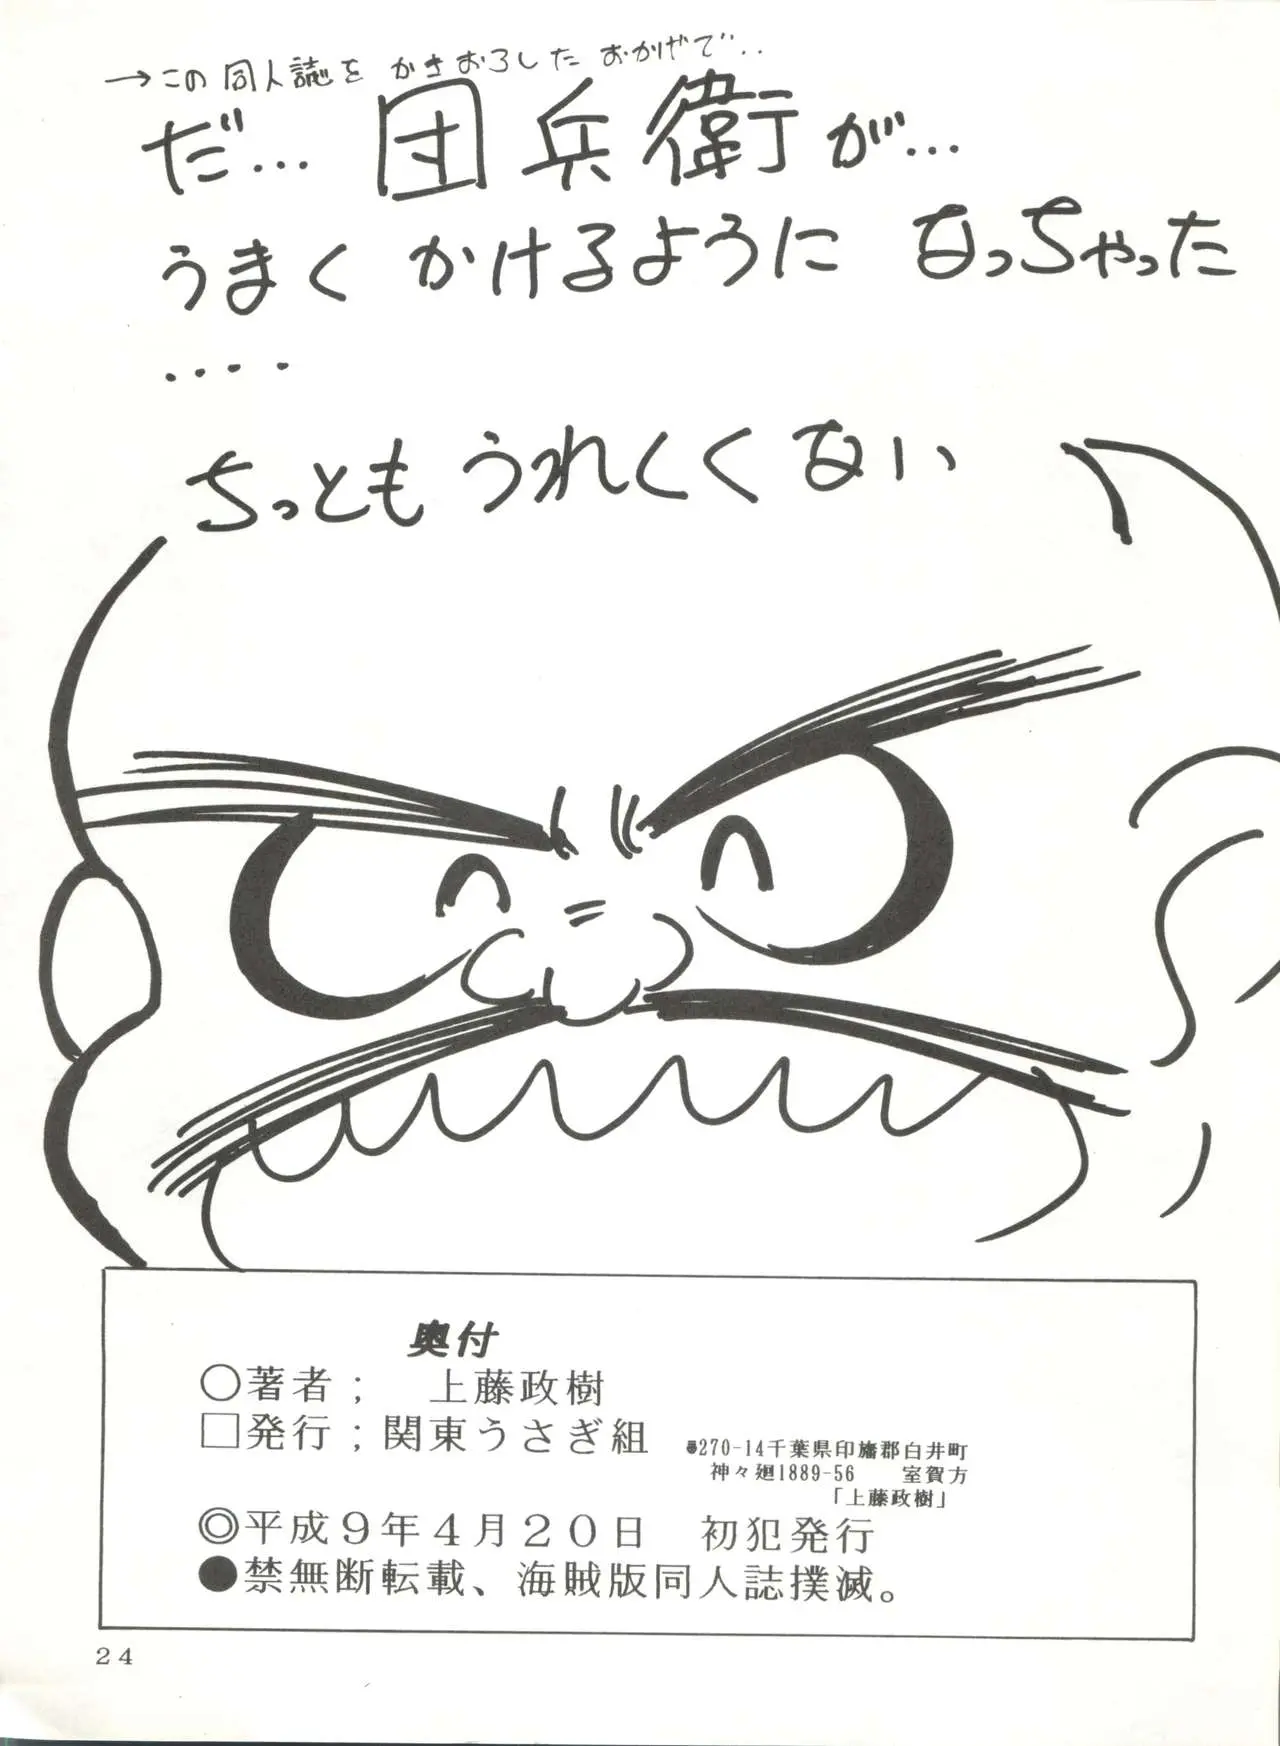 →この同人誌を かきおろした おかげで‥
だ… 団兵衛が…
うまく かけるように なっちゃった
・・・・
ちっとも うれしくない
奥付
○著者； 上藤政樹
□発行；関東うさぎ組
〠270-14千葉県印旛郡白井町
神々廻1889-56 室賀方
「上藤政樹」
◎平成９年４月２０日 初犯発行
●禁無断転載、海賊版同人誌撲滅。
２４